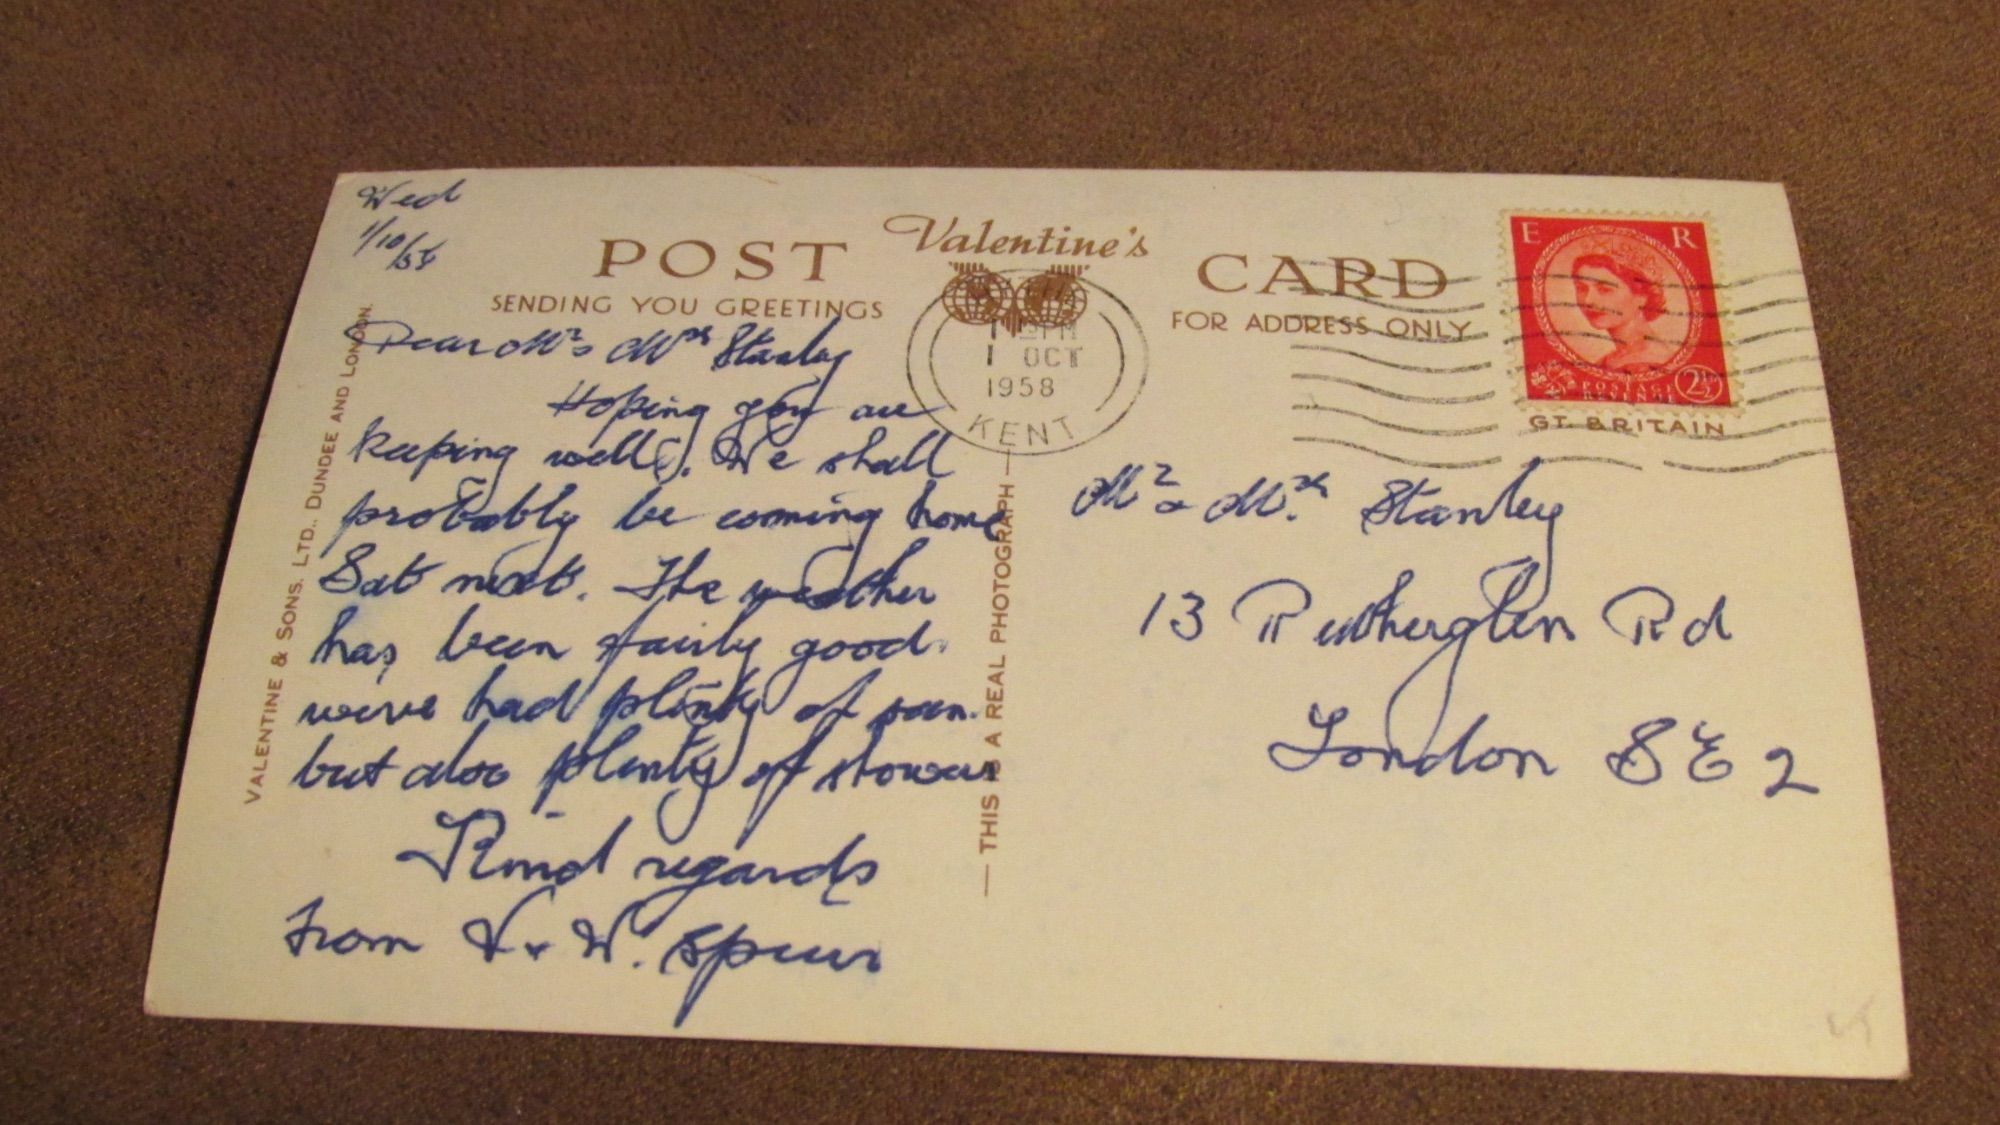 Wed
1/10/58
POST Valentine's CARD
SENDING YOU GREETINGS
FOR ADDRESS ONLY
E R
POSTAGE
REVENUE
2½D
GT. BRITAIN
1 OCT
1958
KENT
Dear Mr & Mrs Stanley
Hoping you are
keeping well. We shall
probably be coming home
Sat next. The weather
has been fairly good.
weve had plenty of sun.
but also plenty of showers
Kind regards
from V & W.
VALENTINE & SONS. LTD., DUNDEE AND LONDON.
— THIS IS A REAL PHOTOGRAPH —
Mr & Mrs Stanley
13 Rutherglen Rd
London SE 2